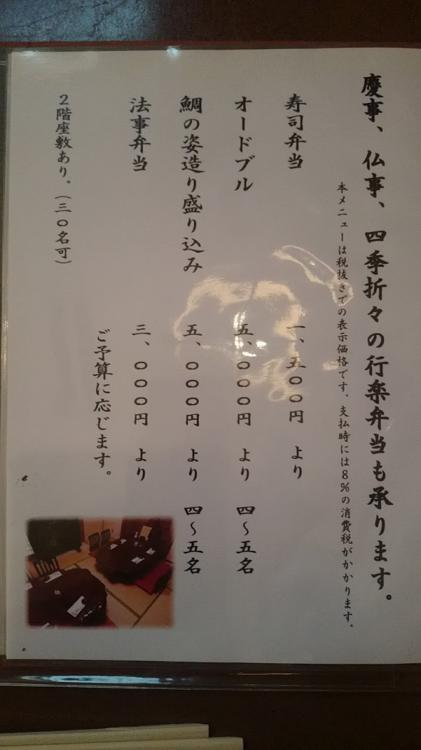 慶事、仏事、四季折々の行楽弁当も承ります。
本メニューは税抜きでの表示価格です。支払時には8%の消費税がかかります。
寿司弁当 一、五〇〇円 より
オードブル 五、〇〇〇円 より 四～五名
鯛の姿造り盛り込み 五、〇〇〇円 より 四～五名
法事弁当 三、〇〇〇円 より
ご予算に応じます。
2階座敷あり。(三〇名可)